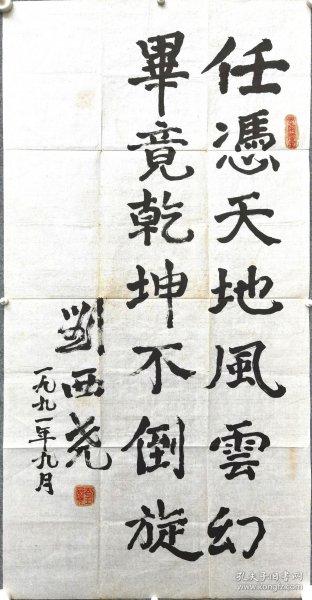 任憑天地風雲幻
畢竟乾坤不倒旋
劉西堯
一九九一年九月
孔夫子旧书网